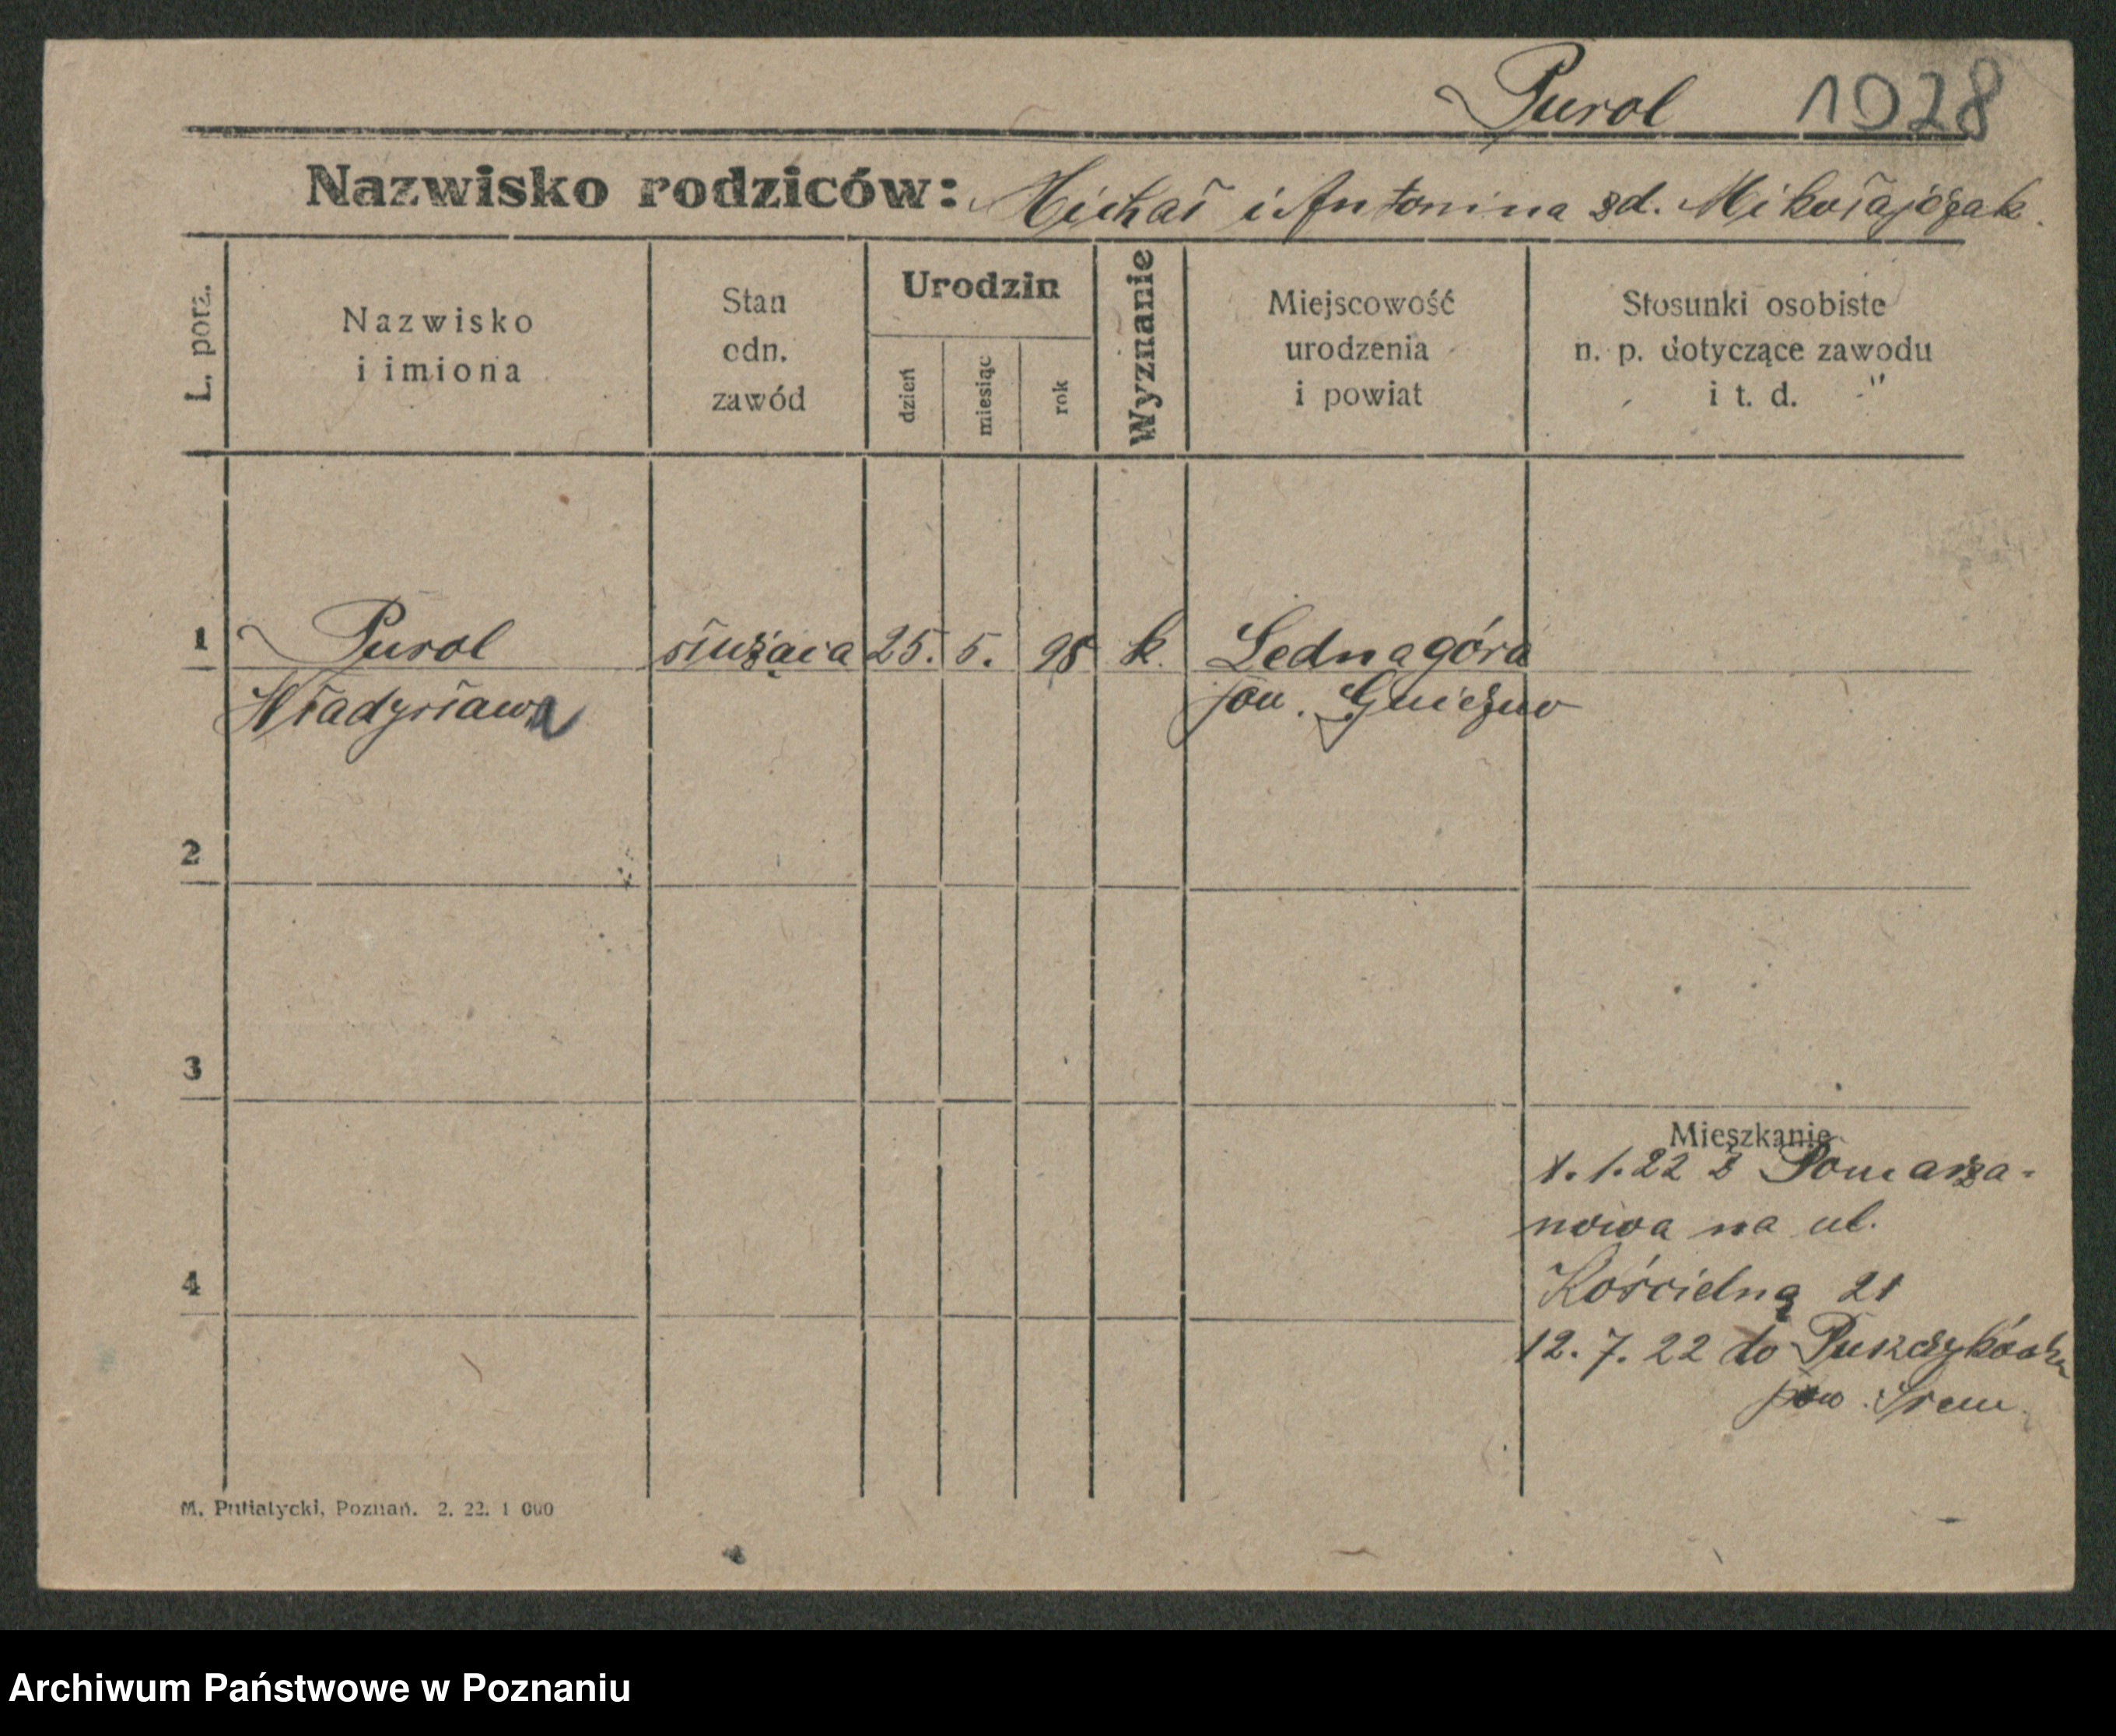 Purol 1928
Nazwisko rodziców: Michał i Antonina zd. Mikołajczak.
L. porz.
Nazwisko
i imiona
Stan
odn.
zawód
Urodzin
dzień
miesiąc
rok
Wyznanie
Miejscowość
urodzenia
i powiat
Stosunki osobiste
n. p. dotyczące zawodu
i t. d.
1 Purol służąca 25. 5. 98 k. Lednagóra
Władysława pow. Gniezno
2
3
Mieszkanie
1.1.22 z Pomarza-
nowa na ul.
4 Kościelną 21
12.7.22 do Puszczykówka
pow. Śrem.
M. Putiatycki, Poznań. 2. 22. 1 000
Archiwum Państwowe w Poznaniu